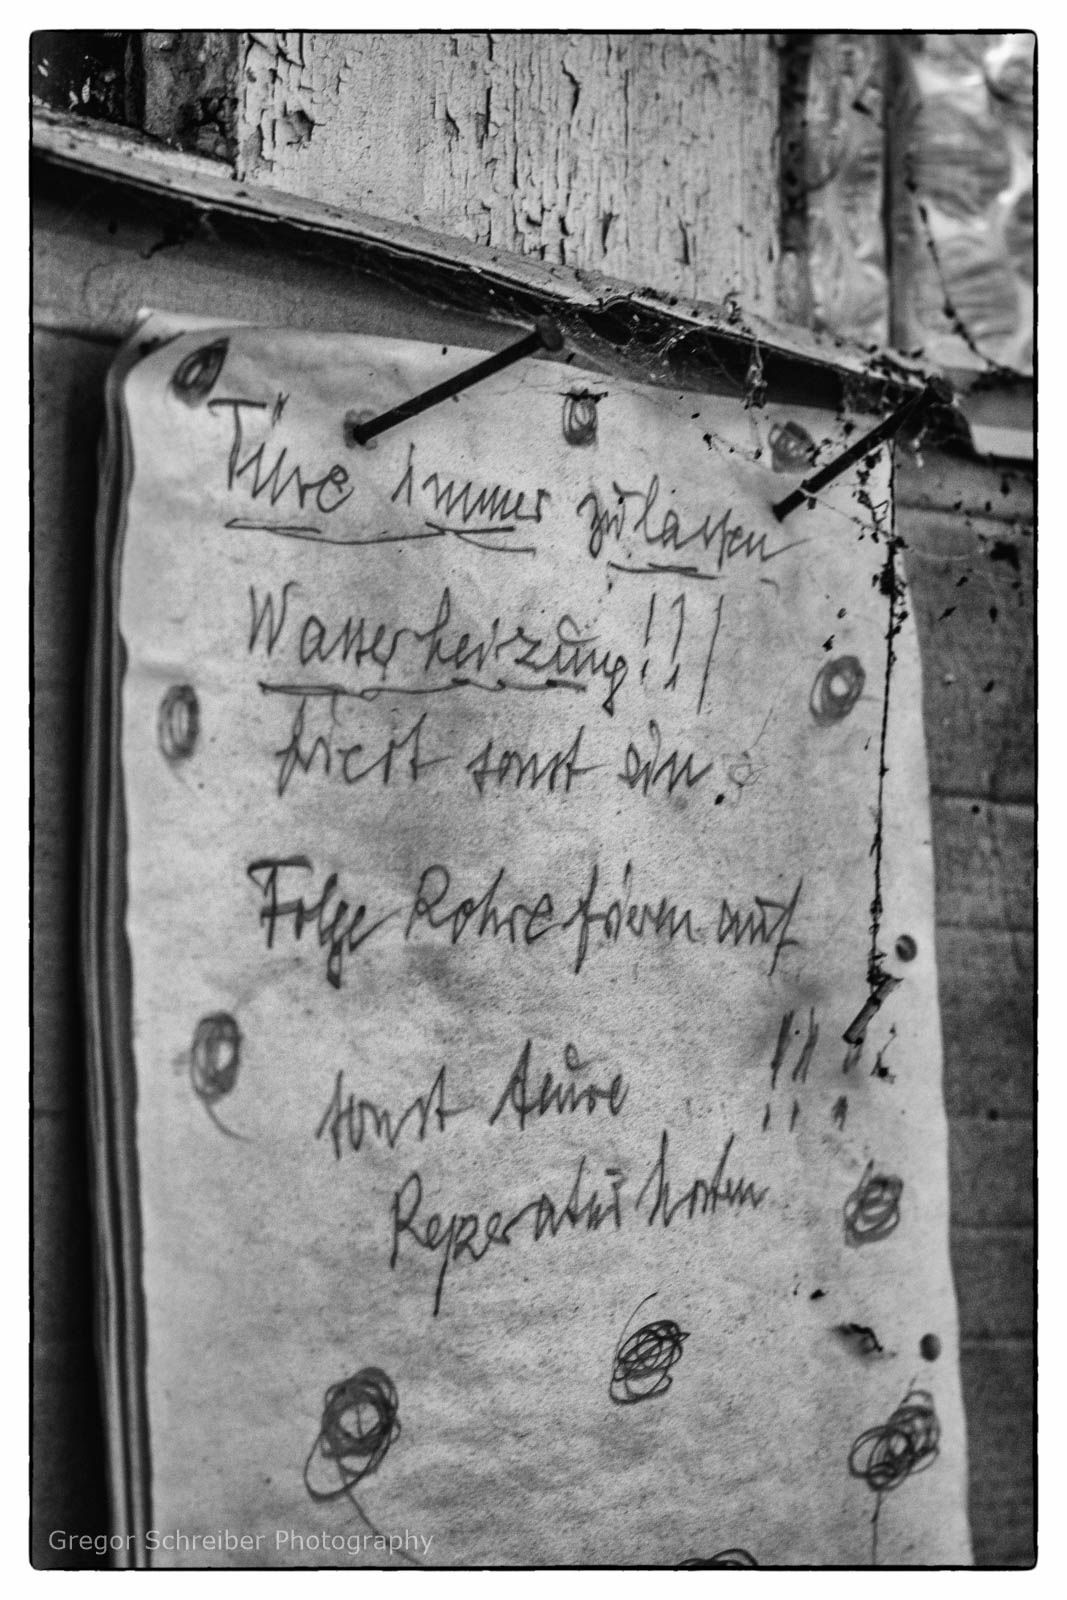 Türe immer zulassen
Wasserheizung!!!
friert sonst ein.
Folge Rohre frieren auf
sonst teure !!!
Reperatur kosten
Gregor Schreiber Photography